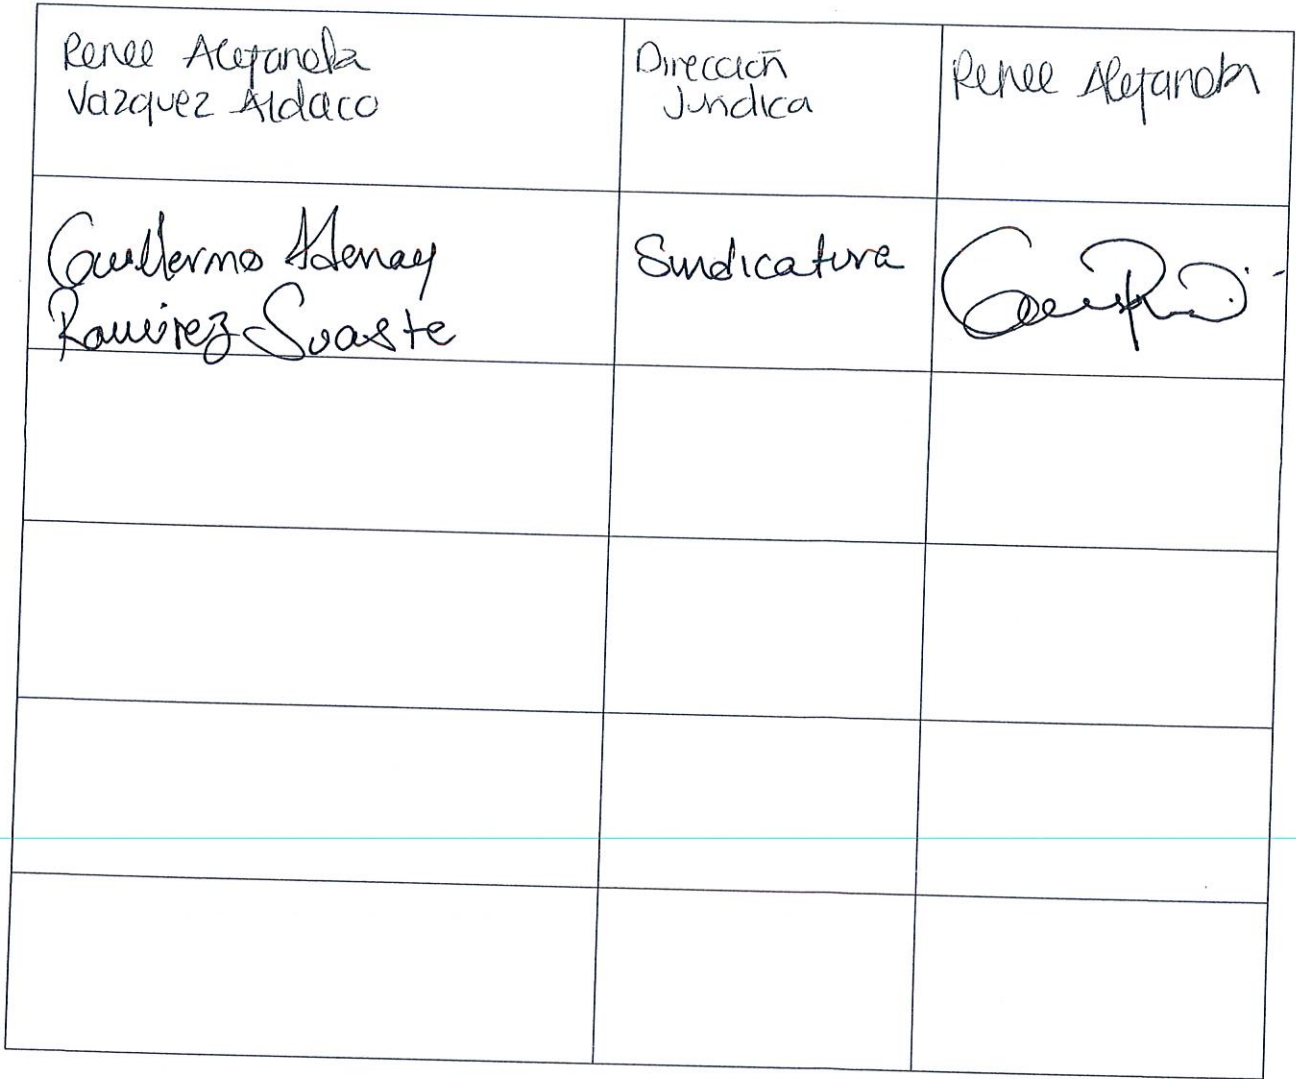 Renee Alejandra
Vazquez Aldaco
Dirección
Jurídica
Renee Alejandra
Guillermo Adenay
Ramirez Suaste
Sindicatura